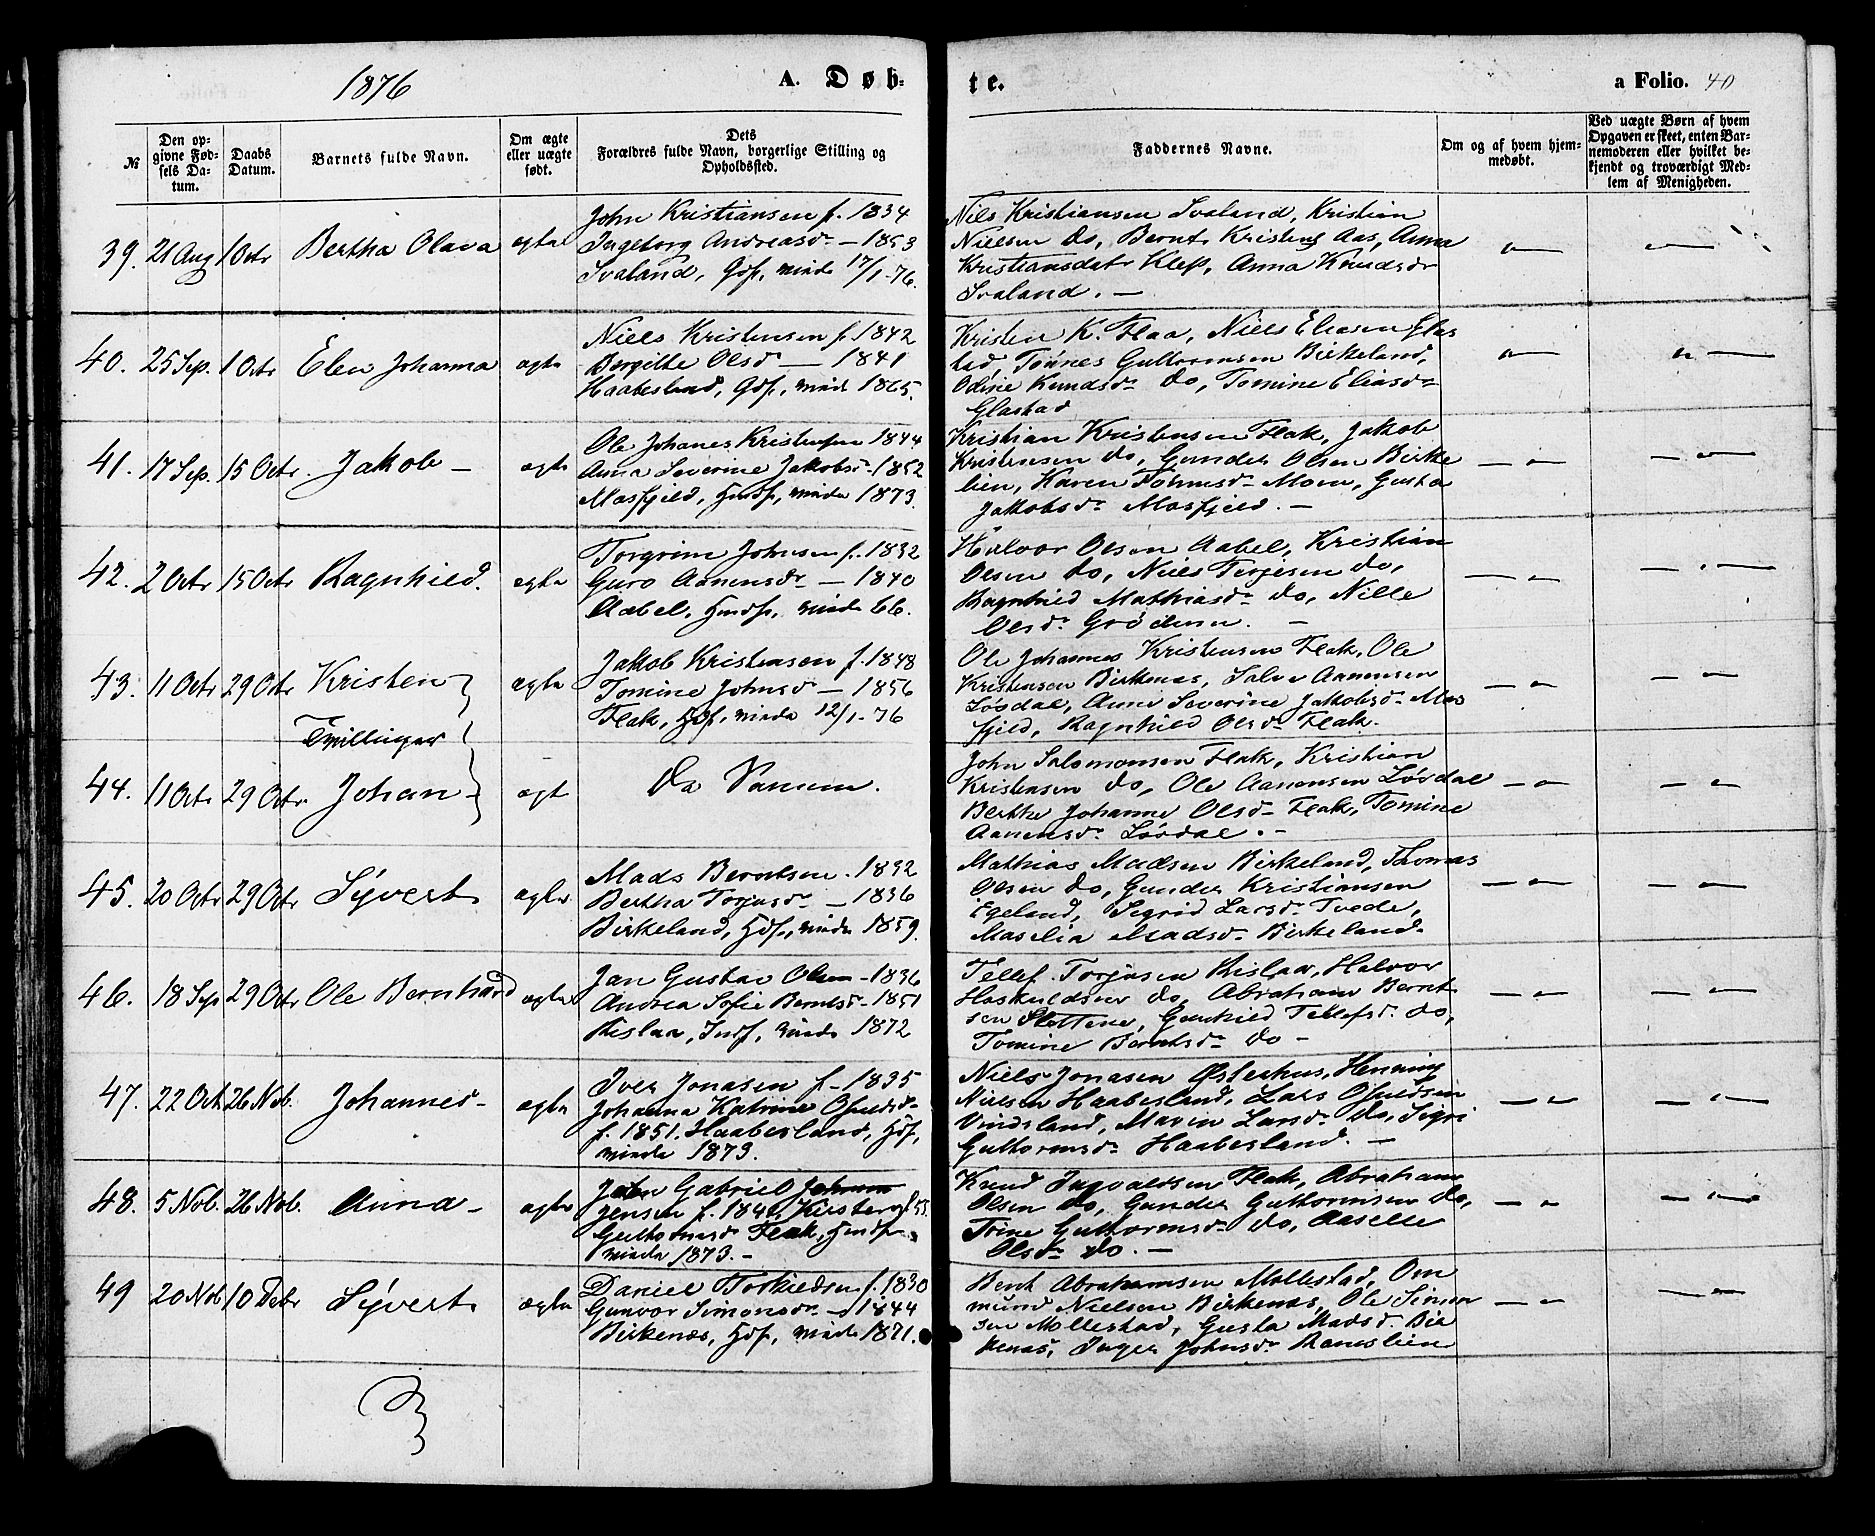 1876 A. Døb- te. a Folio. 40
№ Den opgivne Fødsels Datum. Daabs Datum. Barnets fulde Navn. Om ægte eller uægte født. Dets Forældres fulde Navn, borgerlige Stilling og Opholdssted. Faddernes Navne. Om og af hvem hjemmedøbt. Ved uægte Børn af hvem Opgaven er skeet, enten Barnemoderen eller hvilket bekjendt og troværdigt Medlem af Menigheden.
39. 21 Aug 1 Octr Bertha Olava ægte
John Kristiansen f. 1834
Ingeborg Andreasdr — 1853
Svaland, Gdf, viede 17/1-76.
Nils Kristiansen Svaland, Kristian
Nielsen do, Bernt Kristens Aas, Anna
Kristiansdatr Klep, Anna Knudsdr
Svaland. —
40. 25 Sep. 1 Octr Elen Johanna ægte
Niels Kristensen f. 1842
Borgitte Olsd — 1841
Haabesland, Gdf, viede 1865.
Kristen K. Flaa, Niels Eliasen Glas
tad, Tönnes Guttormsen Birkeland,
Odine Knudsdr do, Tomine Eliasdr
Glastad
41. 17 Sep. 15 Octr. Jakob — ægte
Ole Johanes Kristensen 1844
Anna Severine Jakobsd — 1852
Mosfjeld, Hmdf, viede 1873.
Kristian Kristensen Flak, Jakob
Kristensen do, Gunder Olsen Birke
lien, Karen Tormsdr Moen, Gusta
Jakobsdr Mosfjeld. —
42. 2 Octr 15 Octr Ragnhild. ægte
Torgrim Johnsen f. 1832
Guro Aanensdr — 1840
Aabel, Hmdf, viede 66.
Halvor Olsen Aabel, Kristian
Olsen do, Niels Terjesen do,
Ragnhild Mathiasdr do, Nille
Olsdr Grödum. —
43. 11 Octr 29 Octr Kristen ægte
Jakob Kristensen f. 1848
Tomine Johnsd — 1856
Flak, Gdf, viede 12/1-76
Ole Johannes Kristensen Flak, Ole
Kristensen Birkenes, Salve Aanensen
Lösdal, Anne Severine Jakobsdr Mos
fjeld, Ragnhild Olsdr Flak.
Tvillinger
44. 11 Octr 29 Octr. Johan — ægt
De Samme.
John Salomonsen Flak, Kristian
Kristensen do, Ole Aanonsen Lösdal
Berthe Johanne Olsd Flak, Tomine
Aanensdr Lösdal. —
45. 20 Octr 29 Octr Syvert ægte
Mads Berntsen. 1832
Bertha Torjusdr — 1836
Birkeland, Gdf, viede 1859.
Mathias Madsen Birkeland, Thomas
Olsen do, Gunder Kristiansen
Egeland, Sigrid Larsdr Tvede,
Maselia Madsdr Birkeland.
46. 18 Sep 29 Octr Ole Bernhard ægte
Jan Gustav Olsen — 1836
Andrea Sofie Berntsdr — 1851
Rislaa, Indf, viede 1872
Tellef Torjusen Rislaa, Halvor
Haskuldsen do, Abraham Bernt
sen Slottene, Gunhild Tellefsdr do,
Tomine Berntsdr do —
47. 22 Oct. 26 Nob. Johannes — ægte
Iver Jonasen f — 1835
Johanna Katrine Osuldsdr
f. 1851. Haabesland, Gdf,
viede 1873.
Niels Jonasen Østerhus, Henning
Nielsen Haabesland, Lars Osuldsen
Vindsland, Maren Larsdr do, Sigri
Guttormsdr Haabesland. —
48. 5 Nob. 26 Nob. Anna — ægte
John Gabriel
Jensen f. 184 f 55.
Guttormsdr Flak, Hmdf
viede 1873. —
Knud Ingvaldsen Flak, Abraham
Olsen do, Gunder Guttormsen do,
Trine Guttormsdr do, Aaselle
Olsdr do. —
49 20 Nob 10 Debr Syvert ægte
Daniel Torkildsen f. 1830
Gunvor Simonsdr — 1844
Birkenes, Gdf, viede 1871.
Bent Abrahamsen Mollestad, Om
mund Nielsen Birkenes, Ole Simon
sen Mollestad, Gusta Madsd Bir
kenes, Inger Johnsdr Ramslien